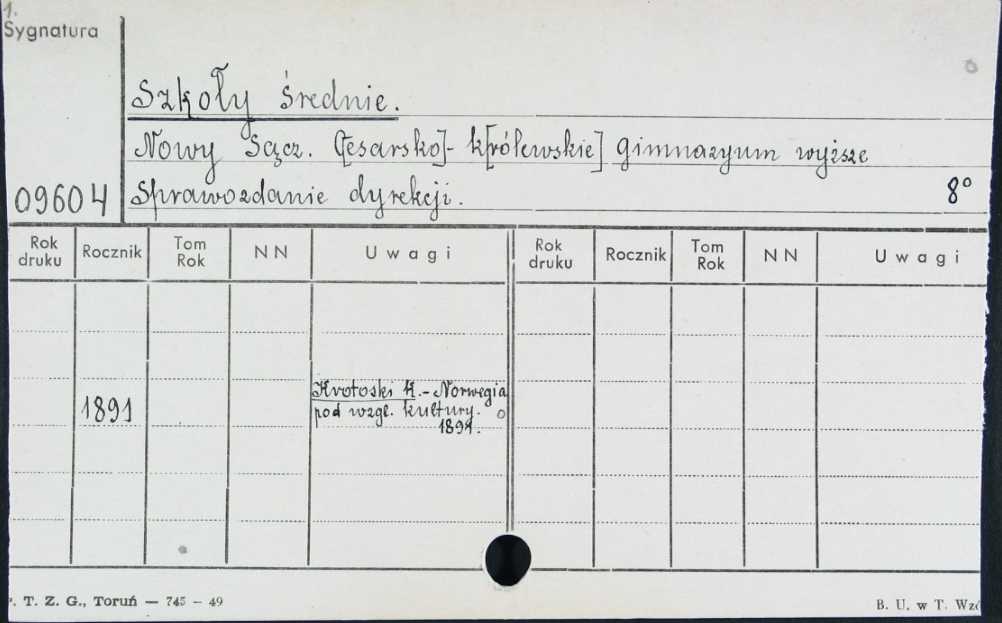 1.
Sygnatura
Szkoły średnie.
Nowy Sącz. C[esarsko]- k[rólewskie] gimnazyum wyższe
09604 Sprawozdanie dyrekcji. 8°
Rok druku Rocznik Tom Rok N N U w a g i Rok druku Rocznik Tom Rok N N U w a g i
1891 Krotoski K. - Norwegia
pod wzgl. kultury.
1891.
. T. Z. G., Toruń — 745 — 49 B. U. w T. Wzó